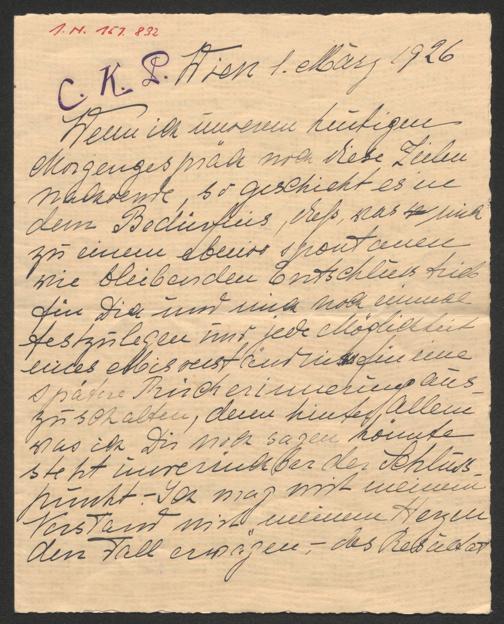 I.N. 167.832
C. K. P.
Wien 1. März 1926
Wenn ich unserem heutigen
Morgengespräch noch diese Zeilen
nachsende, so geschieht es in
dem Bedürfnis, das, was mich
zu einem ebenso spontanen
wie bleibenden Entschluss trieb
für Dich und mich noch einmal
festzulegen und jede Möglichkeit
eines Missverständnisses für eine
spätere Rückerinnerung aus-
zuschalten, denn hinter Allem
was ich Dir noch sagen könnte
steht unverrückbar der Schluss-
punkt. - Ich mag mit meinem
Verstand mit meinem Herzen
den Fall erwägen, - das Resultat